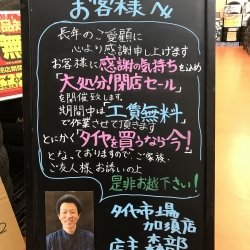 お客様へ
長年のご愛顧に
心より感謝申し上げます
お客様に感謝の気持ちを込め
「大処分!閉店セール」
を開催致します。
期間中は「工賃無料」
で作業させて頂きます
とにかく「タイヤを買うなら今!」
となっておりますので、ご家族、
ご友人様お誘いの上
是非お越下さい!
タイヤ市場
加須店
店主 森部
無
2